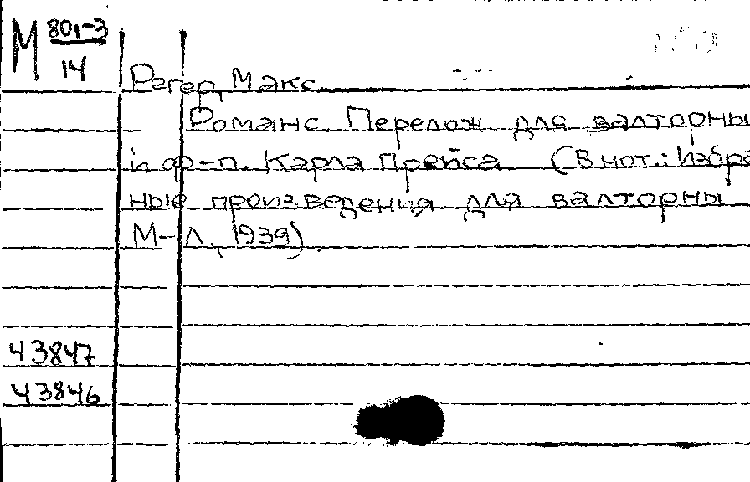 М 801-3
14
Регер, Макс.
Романс. Перелож. для валторны
и ф-п. Карла Прейса (В нот.: Избра
ные произведения для валторны
М-Л, 1939)
43847
43846